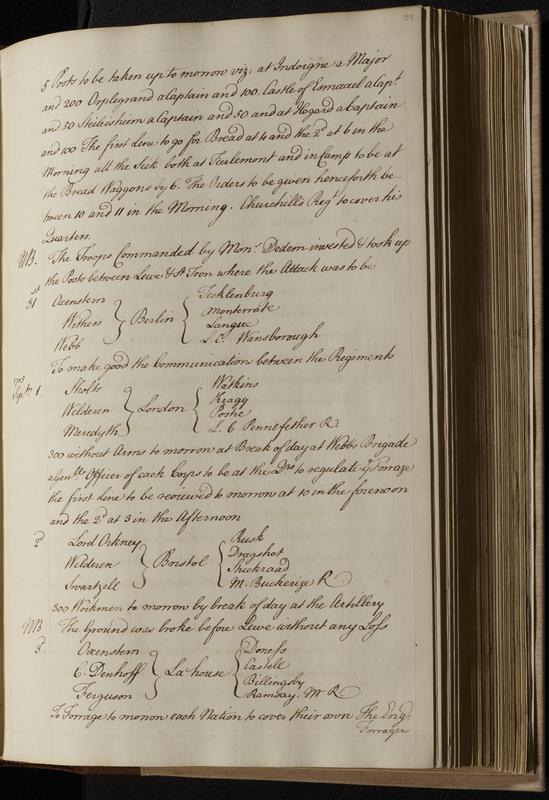 59
5 Posts to be taken up to morrow viz. at Indoigne a Major
and 200 Orplegrand a Captain and 100. Castle of Esmael a Capt.
and 50 a Captain and 50 and at Hogard a Captain
and 100 The first Line to go for Bread at 4 and the 2d at 6 in the
Morning all the Sick both at Teerlemont and in Camp to be at
the Bread Waggons by 6. The Orders to be given henceforth be
tween 10 and 11 in the Morning. Churchill's Regt. to cover his
Quarters.
NB. The Troops Commanded by Monr. Dedem invested & took up
the Posts between Lewe & St. Tron where the Attack was to be
31st Oxenstern
Withers
Webb
Berlin
Tecklenburg
Monterrate
Langue
L. C. Wansborough
To make good the Communications between the Regiments
1703
Sept. 1.
Sholts
Welderen
Meredyth
London
Watkins
Kragg
Poshe
L. C. Pennefether R
300 without Arms to morrow at Break of day at Webbs Brigade
Officer of each Corps to be at the to regulate ye Forrage
the first Line to be reviewed to morrow at 10 in the forenoon
and the 2d at 3 in the Afternoon
2d
Lord Orkney
Welderen
Swartzell
Bristol
Rusk
Dragshot
Shickraad
M. Buckerige R
300 Workmen to morrow by break of day at the Artillery
NB The Ground was broke before Lewe without any Loss
3d.
Oxenstern
C. Denhoff
Ferguson
La house
Doness
Castell
Billingsby
Ramsay. M R
To Forrage to morrow each Nation to cover their own The Engl.
Forragers